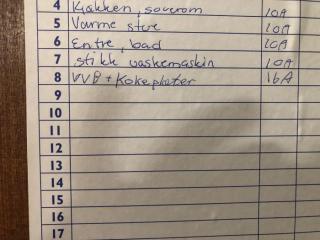 4 Kjøkken, soverom 10A
5 Varme stue 10A
6 Entre, bad 10A
7 stikk vaskemaskin 10A
8 VVB + Kokeplater 16A
9
10
11
12
13
14
15
16
17